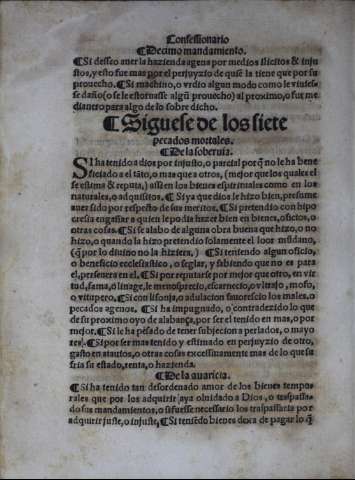 Confessionario
¶Decimo mandamiento.
¶Si desseo auer la hazienda agena por medios ilicitos & iniu
stos, y esto fue mas por el perjuyzio de quiē la tiene que por su
prouecho. ¶Si machino, o vrdio algun modo como le viniesse
daño (o se le estornasse algū prouecho) al proximo, o fue me
dianero para algo de lo sobre dicho.
¶Siguese de los siete
pecados mortales.
¶De la soberuia.
SI ha tenido a dios por injusto, o parcial porq̄ no le ha bene
ficiado a el tāto, o mas que a otros, (mejor que los quales el
se estima & reputa,) assi en los bienes espirituales como en los
naturales, o adquisitos. ¶Si ya que dios le hizo bien, presume
auer sido por respecto de sus meritos. ¶Si pretendio con hipo
cresia engañar a quien le podia hazer bien en bienes, oficios, o
otras cosas. ¶Si se alabo de alguna obra buena que hizo, o no
hizo, o quando la hizo pretendio solamente el loor mūdano,
(q̄ por lo diuino no la hiziera.) ¶Si teniendo algun oficio,
o beneficio ecclesiastico, o seglar, y sabiendo que no es para
el, perseuera en el. ¶Si por reputarse por mejor que otro, en vir
tud, fama, o linage, le menosprecio, escarnecio, o vltrajo, mofo,
o vitupero. ¶Si con lisonja, o adulacion fauorescio los malos, o
pecados agenos. ¶Si ha impugnado, o contradezido lo que
de su proximo oyo de alabança, por ser el tenido en mas, o por
mejor. ¶Si le ha pesado de tener subjecion a perlados, o mayo
res. ¶Si por ser mas tenido y estimado en perjuyzio de otro,
gasto en atauios, o otras cosas excessiuamente mas de lo que su
fria su estado, renta, o hazienda.
¶De la auaricia.
¶Si ha tenido tan desordenado amor de los bienes tempo
rales que por los adquirir aya oluidado a Dios, o trespassa
do sus mandamientos, o si fuesse necessario los traspassaria por
adquirir juste, o iniuste, ¶Si teniēdo bienes dexa de pagar lo q̄